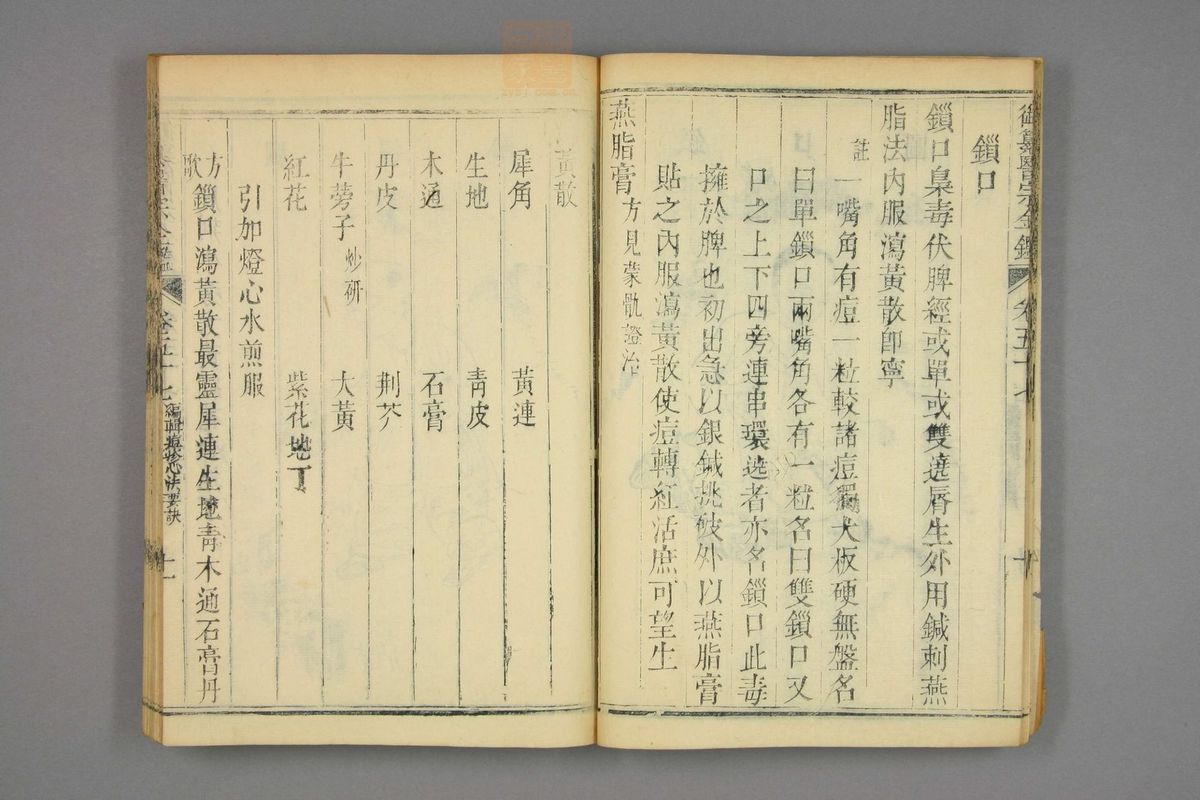 御纂醫宗金鑑 卷五十七 十
鎖口
鎖口梟毒伏脾經或單或雙遶唇生外用鍼刺燕
脂法內服瀉黃散卽寧
註一嘴角有痘一粒較諸痘獨大板硬無盤名
曰單鎖口兩嘴角各有一粒名曰雙鎖口又
口之上下四旁連串環遶者亦名鎖口此毒
擁於脾也初出急以銀鍼挑破外以燕脂膏
貼之內服瀉黃散使痘轉紅活庶可望生
燕脂膏方見蒙骩證治
黃散
犀角 黃連
生地 靑皮
木通 石膏
丹皮 荆芥
牛蒡子炒研 大黃
紅花 紫花地丁
引加燈心水煎服
方歌鎖口瀉黃散最靈犀連生地靑木通石膏丹
卷五十七 編輯痘疹心法要訣 十一